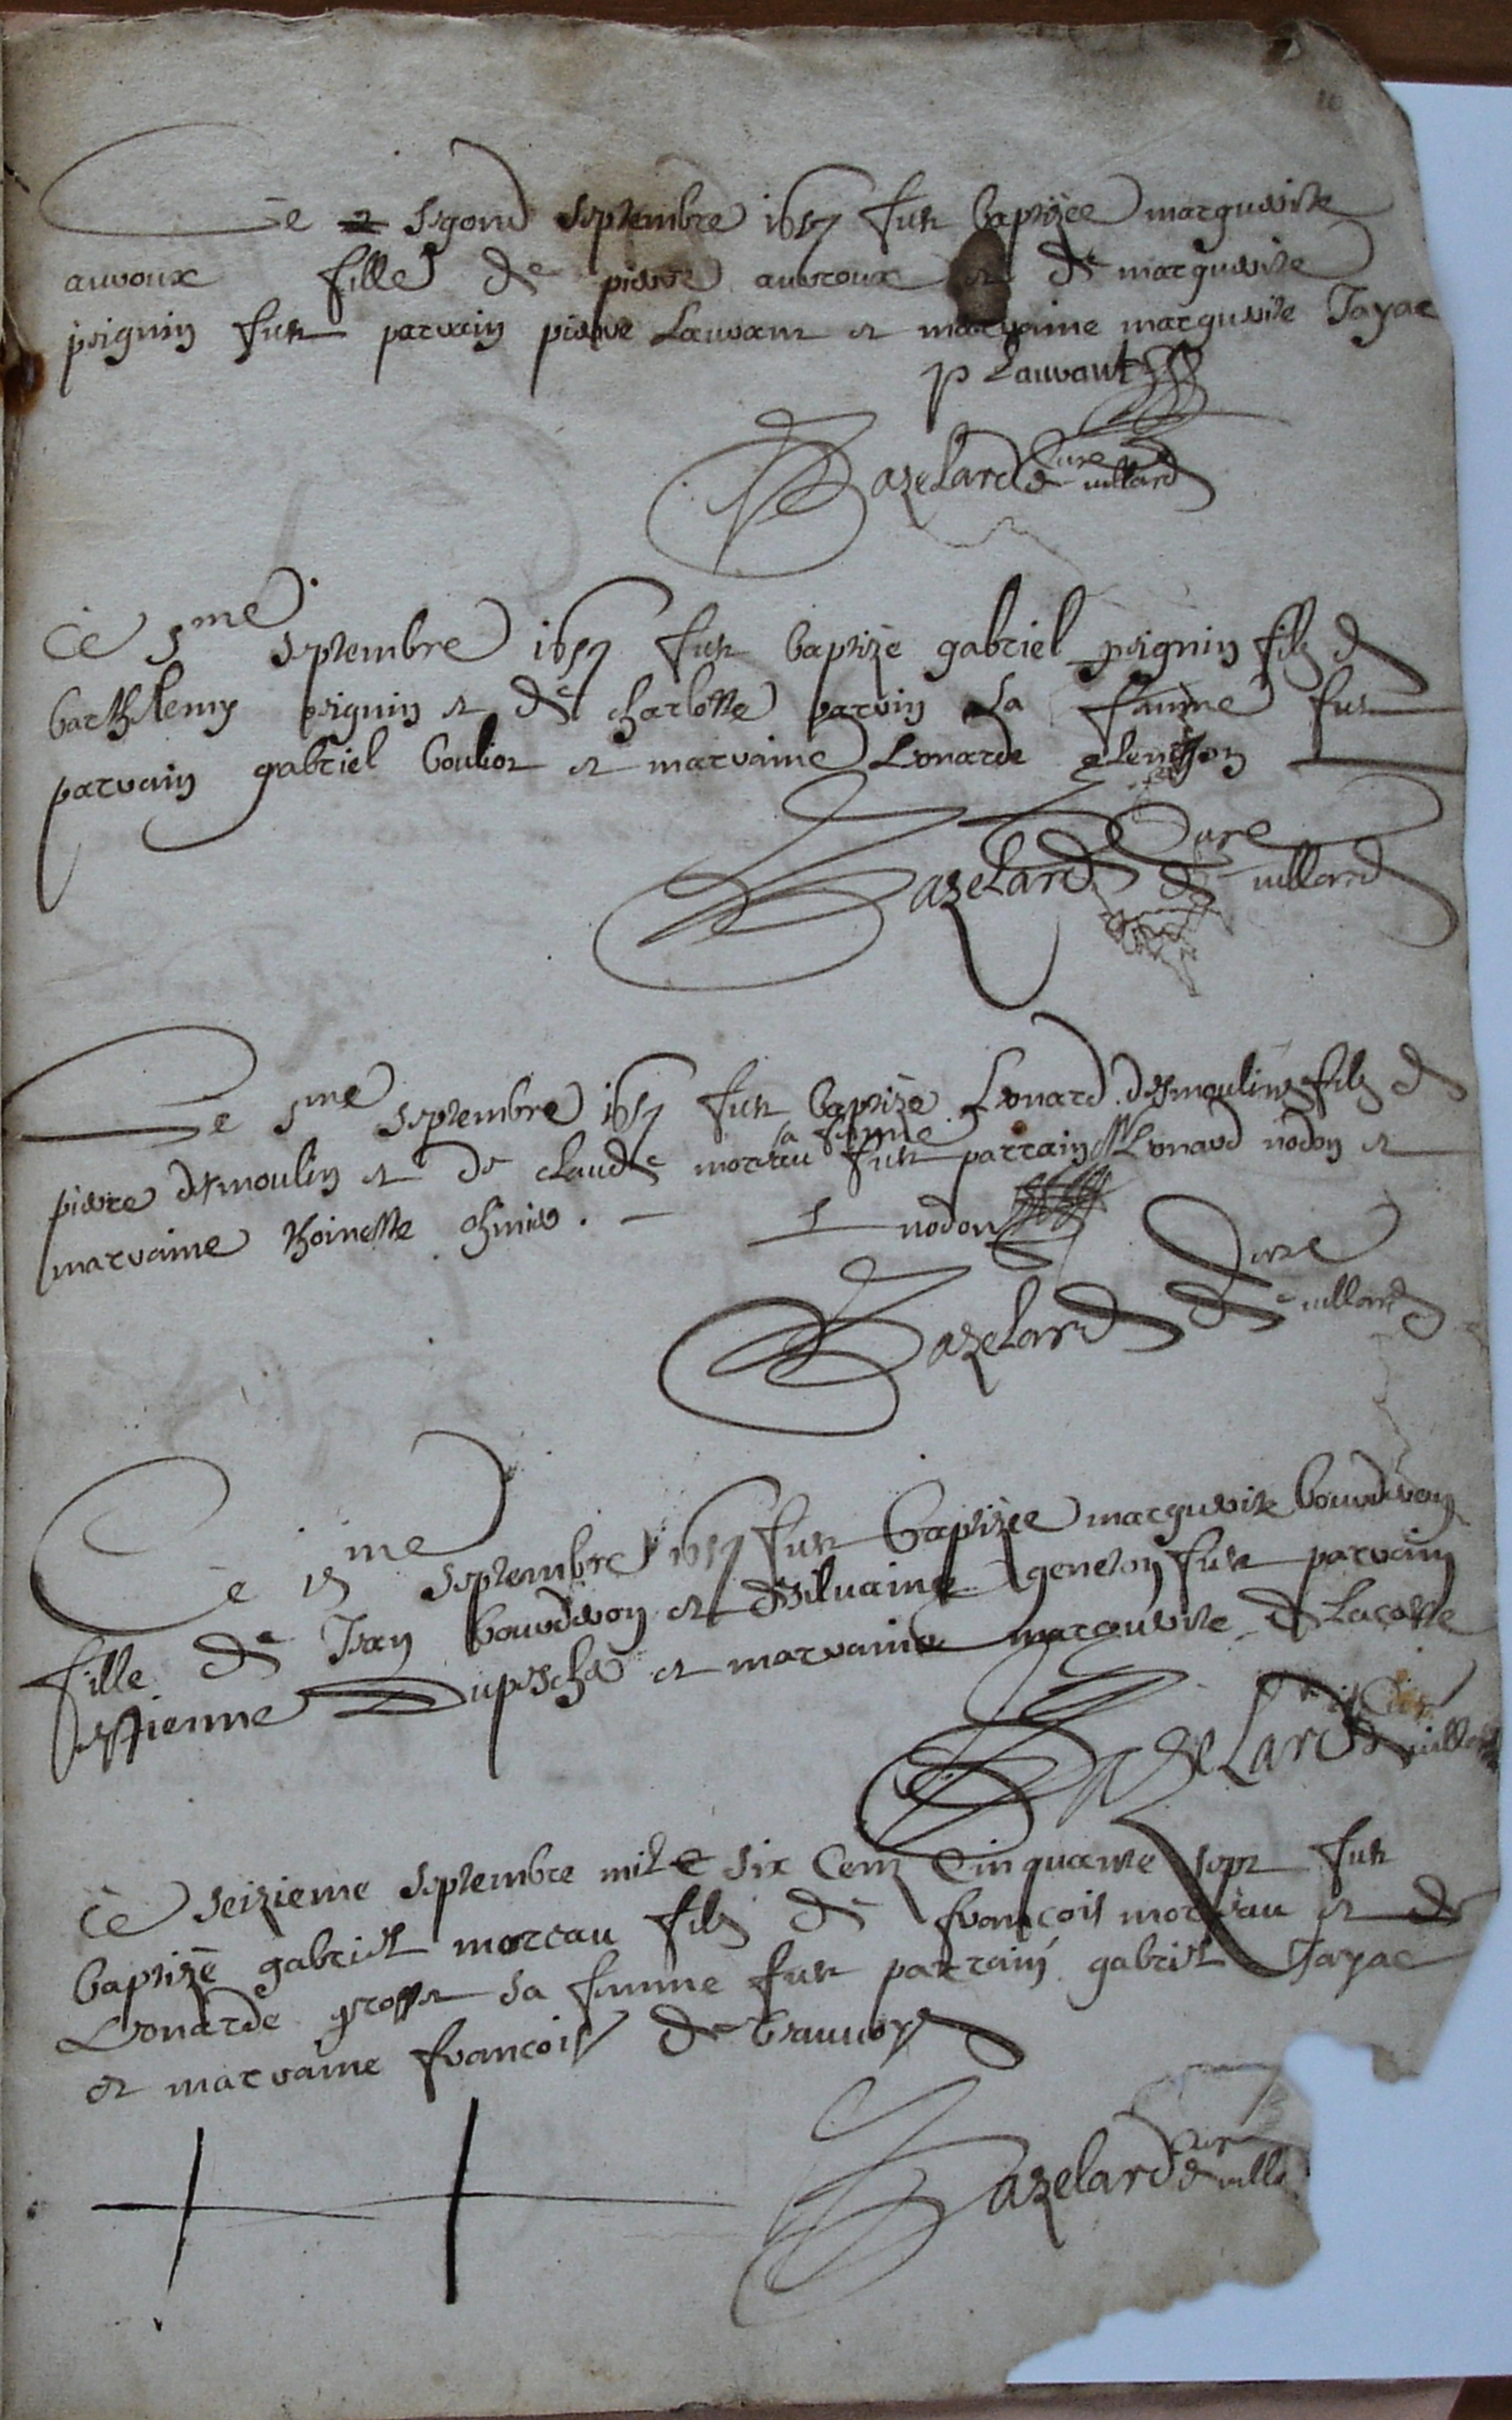 Ce segond septembre 1657 fut baptizèe marguerite
auroux fille de pierre auroux et de marguerite
peignin fut parrain pierre Lauvant et marraine marguerite Jayac
p Lauvant
Bazelard Cure de villard
Ce 5me septembre 1657 fut baptizè gabriel peignin filz de
barthelemy peignin et de charlotte parrin sa femme fut
parrain gabriel boulior et marraine Leonarde
Bazelard Cure de villard
Ce 5me septembre 1657 fut baptizè Leonard desmoulins filz de
pierre desmoulin et de claude moreau sa femme fut parrain Leonard nodon et
marraine thoinette
L nodon
Bazelard Cure de villard
Ce me septembre 1657 fut baptizèe marguerite
fille de Jean et de silvaine geneton fut parrain
estienne Dupeché et marraine marguerite de Lacoste
Bazelard de villard
Ce seizieme septembre mil et six Cent Cinquante sept fut
baptizè gabriel moreau filz de francois moreau et de
Leonarde grosset sa femme fut parrain gabriel Jayac
et marraine francoise de
Bazelard Cure de villa